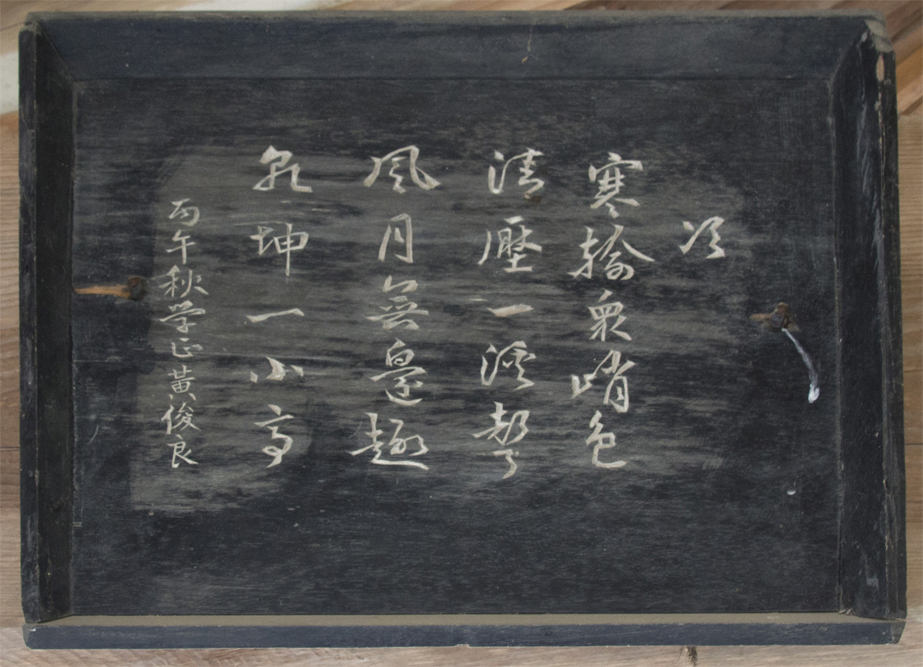 次
寒輸衆峭色
清壓一溪聲
風月無邊趣
乾坤一小亭
丙午秋学正黃俊良